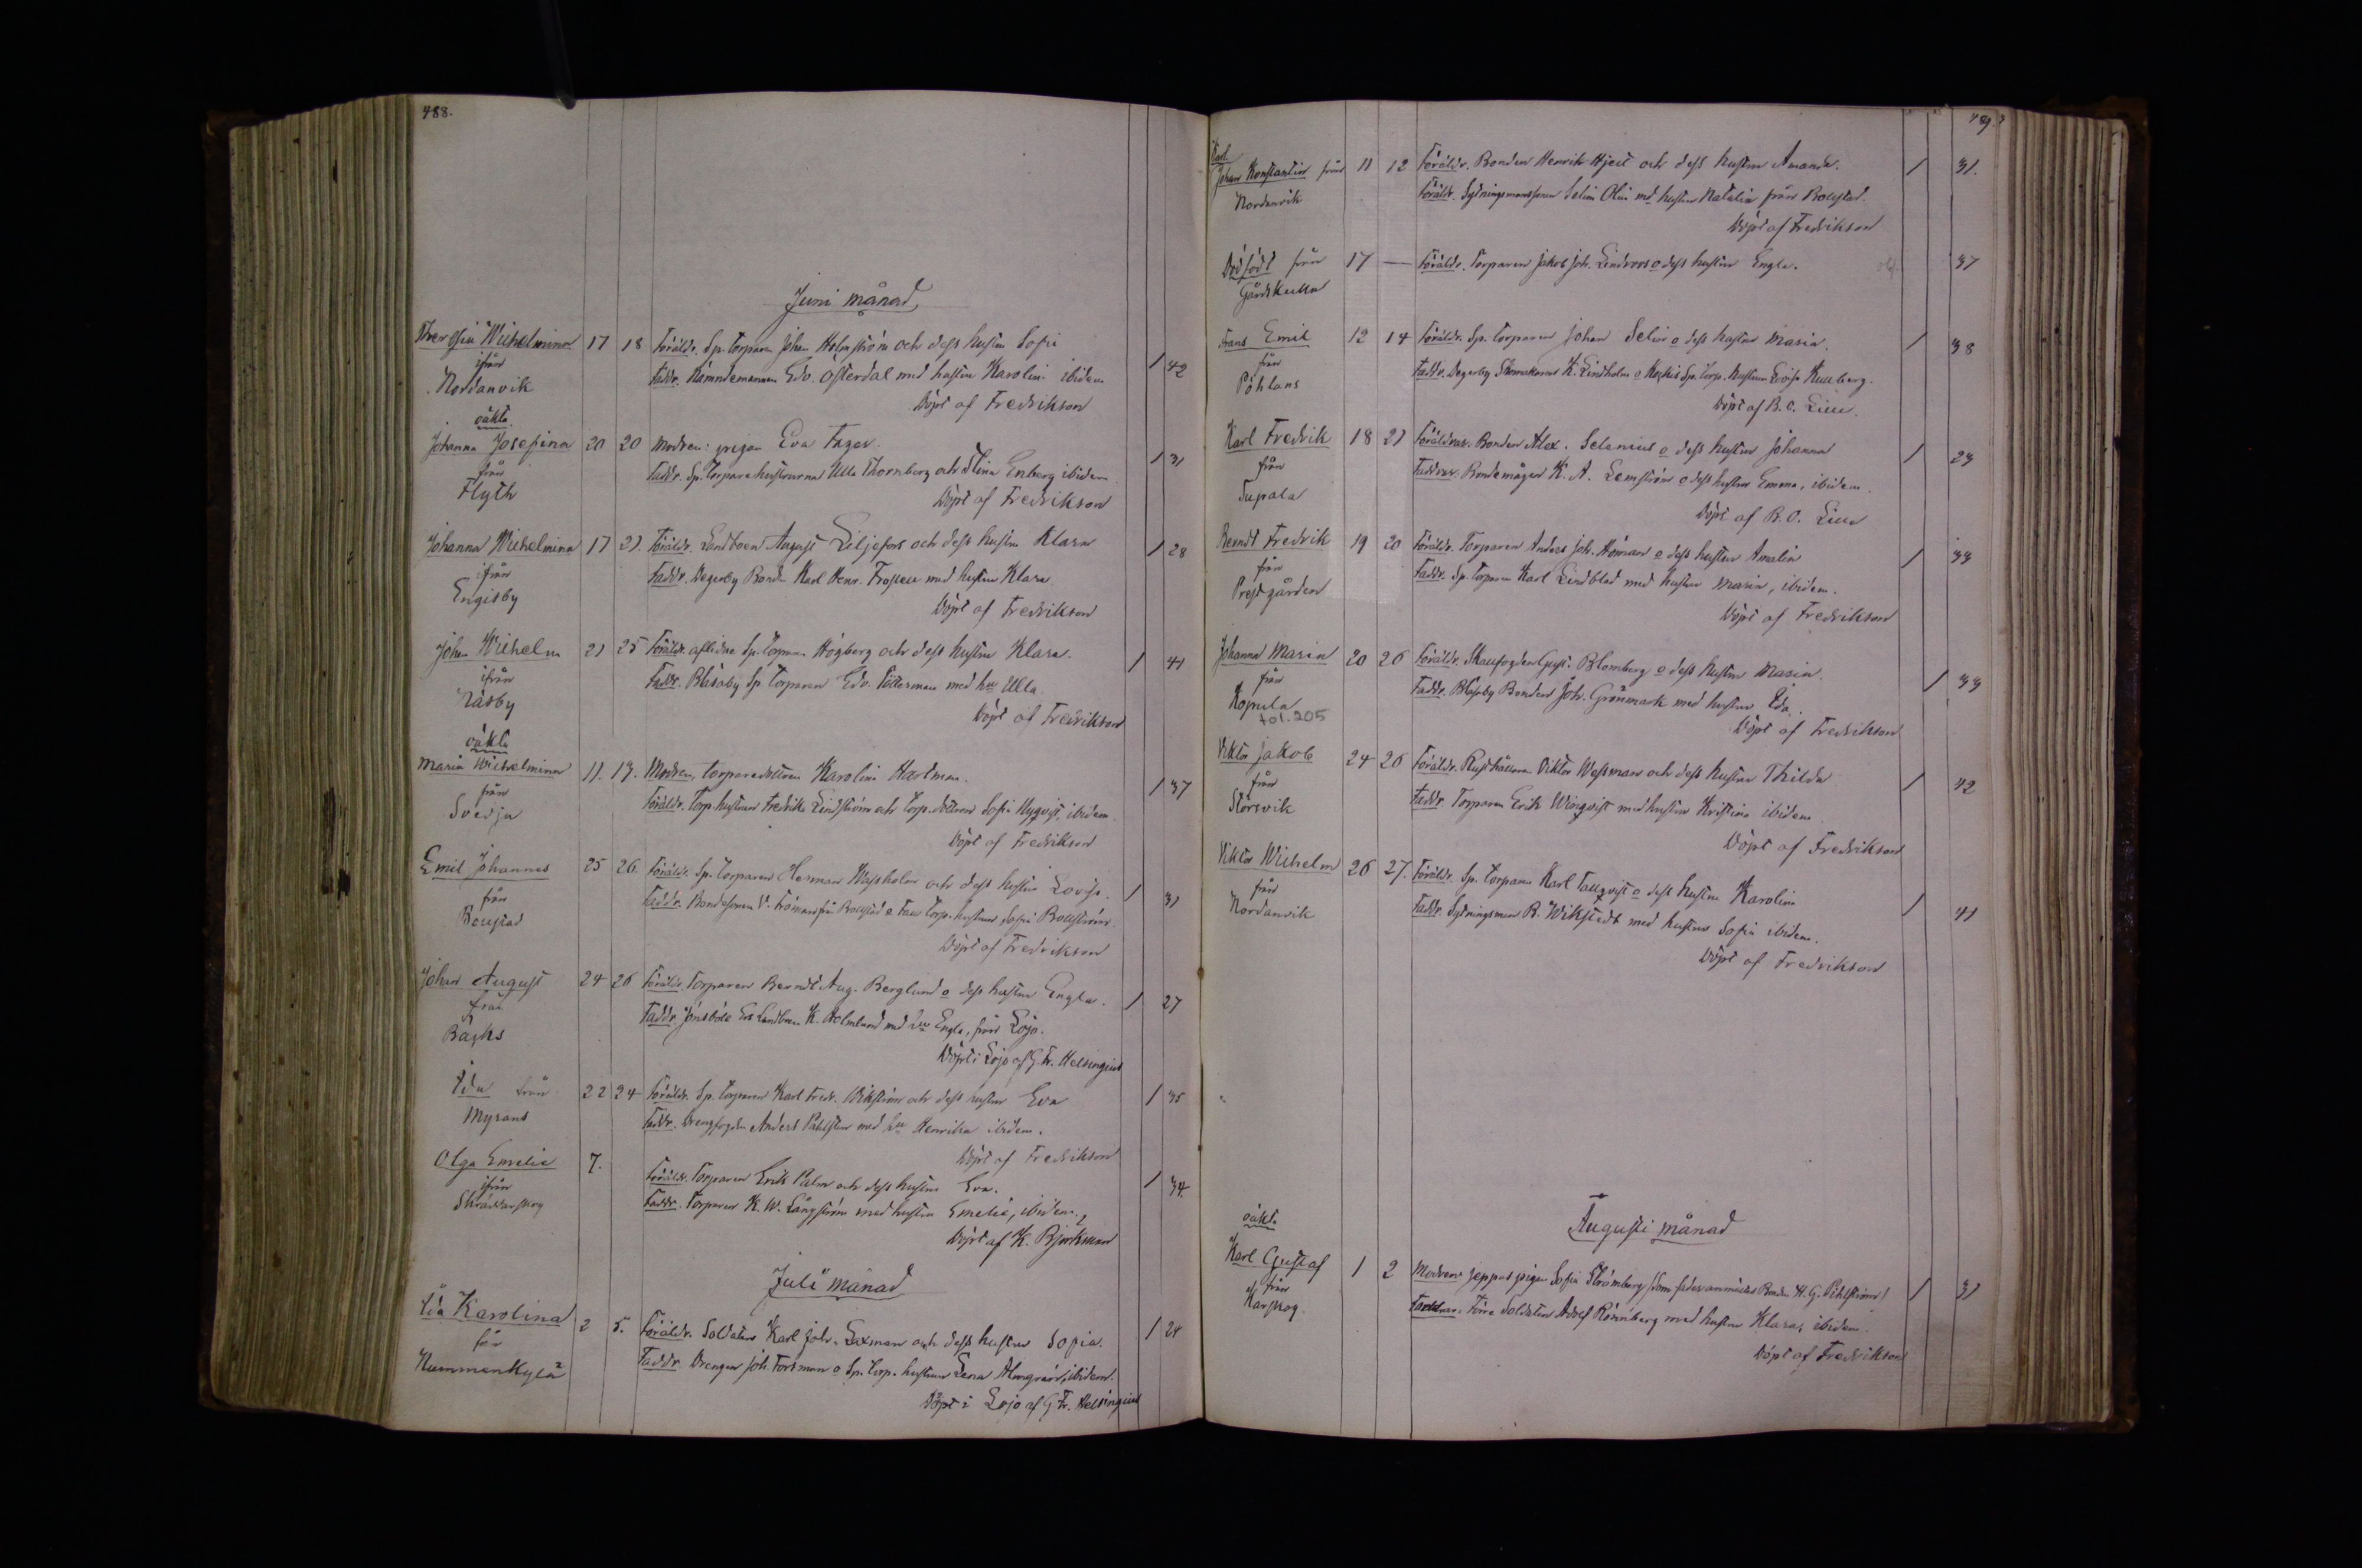 488.
Juni månad
Wilhelmina 17 18 Föräldr. Sp. torparen Johan Holmström och dess hustru Sofi
ifrån
Nordanvik
Faddr. Nämndemannen Edv. Österdal med hustru Karolin ibidem / 42
Döpt af Fredrikson
oäkta
Johanna Josefina 20 20 Modren: pigan Eva Fager.
från
Flyth
Faddr. Sp. Torparehustrurna Ulla Thornberg och Stina Enberg ibidem / 31
Döpt af Fredrikson
Johanna Wilhelmina 17 21. Föräldr. Landboen August Liljefors och dess hustru Klara / 28
ifrån
Engisby
Faddr. Degerby Bonden Karl Henr. med hustru Klara
Döpt af Fredrikson
Johan Wilhelm 21 25 Föräldr. aflidne Sp. Torparen Högberg och dess hustru Klara. / 41
ifrån
Näsby
Faddr. Blåsaby Sp. torparen Edv. med hu Ulla
Döpt af Fredrikson
oäkta
Maria Wilhelmina 11. 13. Modren, torparedottren Karolin Hartman. / 37
från
Svedja
Föräldr. Torp. hustrun Fredrika Lindström och Torp. dottren Sofia Nyqvist, ibidem
Döpt af Fredrikson
Emil Johannes 25 26. Föräldr. Sp. Torparen Herman Waxholm och dess hustru Lovisa. / 31
från
Bollstad
Faddr. Bondesonen V. Fröman från Bollstad o Torp. hustrun Sofia Bollström.
Döpt af Fredrikson
Johan August 24 26 Föräldr. Torparen Berndt Aug. Berglund o dess hustru Engla. / 27
från
Bäcks
Faddr. Jönsböle Landboen K. Holmlund med hu Engla, från Lojo.
Döpt i Lojo af G. Fr. Helsingius
Ida från 22 24 Föräldr. Sp. Torparen Karl Fredr. Wikström och dess hustru Eva / 35
Myrans
Faddr. Drengfogden Anders Påhlsten med hu Henrika ibidem.
Döpt af Fredrikson
Olga Emelie 7. Föräldr. Torparen Erik Palm och dess hustru Eva. / 34.
ifrån
Skräddarskog
Faddr. Torparen K. W. Långström med hustru Emelie, ibidem.
Döpt af K. Björkman
Juli månad
Ida Karolina 2 5. Föräldr. Soldaten Karl Joh. Laxman och dess hustru Sofia. / 24
från
Nummenkylä
Faddr. Drengen Joh. Forsman o Sp. Torp. hustrun Lena Almgren, ibidem.
Döpt i Lojo af G. Fr. Helsingius
489
Karl
Johan Konstantin från 11 12 Föräldr. Bonden Henrik Hjelt och dess hustru Amanda. / 31.
Nordanvik
Föräldr. Sytningsmanssonen Selim Olin md hustru Natalia från Bollstad.
Döpt af Fredrikson
Dödfödt från 17 — Föräldr. Torparen Jakob Joh. Lindroos o dess hustru Engla. 37
Gårdskulla
Frans Emil 12 14 Föräldr. Sp. torparen Johan Selin o dess hustru Maria. / 38
från
Påhlans
Faddr. Degerby Skomakaren K. Lindholm o Sp. Torp. hustrun Lovisa Kullberg.
Döpt af B. O. Lille.
Karl Fredrik 18 21 Föräldrar. Bonden Alex. Selenius o dess hustru Johanna / 23
från
Tupala
Faddrar. Bondemågen K. A. Lemström o dess hustru Emma, ibidem.
Döpt af B. O. Lille
Berndt Fredrik 19 20 Föräldr. Torparen Anders Joh. Höman o dess hustru Amalia / 33
från
Prestgården
Faddr. Sp. torparen Karl Lindblad med hustru Maria, ibidem.
Döpt af Fredrikson
Johanna Maria 20 26 Föräldr. Skallfogden Gust. Blomberg o dess hustru Maria. / 33
från
Kopula
fol. 205
Faddr. Blåsaby Bonden Joh. Grönmark med hustru Ida.
Döpt af Fredrikson
Viktor Jakob 24 26 Föräldr. Rusthållaren Viktor Wessman och dess hustru Thilda / 42
från
Störsvik
Faddr. Torparen Erik Winqvist med hustru Kristina ibidem
Döpt af Fredrikson
Viktor Wilhelm 26 27. Föräldr. Sp. Torparen Karl Tallqvist o dess hustru Karolina / 41
från
Nordanvik
Faddr. Sytningsman R. Wikstedt med hustru Sofia ibidem.
Döpt af Fredrikson
Augusti månad
oäkta
Karl Gustaf 1 2 Modren: Jeppas pigan Sofia Strömberg (Som fader anmäldes Bonden K. G. Påhlström) / 31
från
Karskog
Faddrar. Förre Soldaten Adolf Rönnberg med hustru Klara, ibidem.
Döpt af Fredrikson